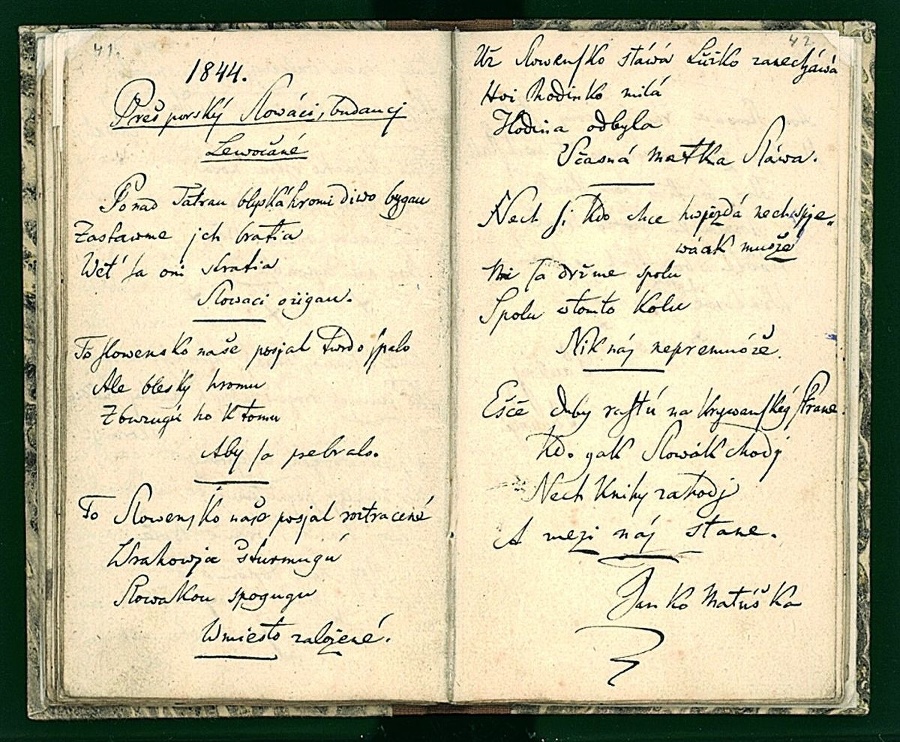 41.
1844.
Prešporský Slowáci, budaucj
Lewočané
Ponad Tatrau blyská hromi diwo bygau
Zastawme jch bratia
Weť sa oni stratia
Slowaci ožigau.
To Slowensko naše posjal twrdo spalo
Ale blesky hromu
Zburzugú ho k tomu
Aby sa prebralo.
To Slowensko naše posjal roztracené
Wrahowja šturmugú
Slowákou spogugu
W miesto založené.
42.
Už Slowensko stáwá Lůžko zanecháwá
Hoi Rodinko milá
Hodina odbyla
Včasná matka Sláwa.
Nech si kdo chce hwjzdá nech spje„
waak može
Mi sa držme spolu
Spolu w tomto kolu
Nik nás nepremóže.
Ešče duby rastú na krywanskég strane.
Kdo gak Slowák chodj
Nech knihy zahodj
A mezi nás stane.
Janko Matúška